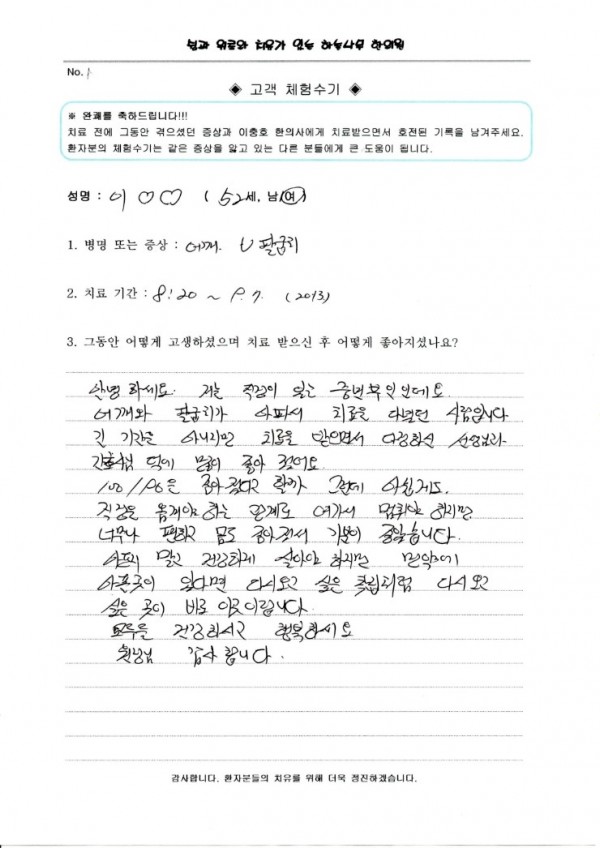 No. 1
◈ 고객 체험수기 ◈
※ 완쾌를 축하드립니다!!!
치료 전에 그동안 겪으셨던 증상과 이충호 한의사에게 치료받으면서 호전된 기록을 남겨주세요.
환자분의 체험수기는 같은 증상을 앓고 있는 다른 분들에게 큰 도움이 됩니다.
성명 : 이 ♡♡ ( 52세, 남, 여)
1. 병명 또는 증상 : 어깨. 팔굼치
2. 치료 기간 : 8. 20 ~ 9. 7. (2013)
3. 그동안 어떻게 고생하셨으며 치료 받으신 후 어떻게 좋아지셨나요?
안녕 하세요. 저는 직장이 있는 중년부인인데요.
어깨와 팔굼치가 아파서 치료를 다녔던 사람입니다
긴 기간은 아니지만 치료을 받으면서 다정하신 선생님과
간호사님 덕에 많이 좋아 졌어요
100/90은 좋아졌다고 할까 그런데 아쉽게도.
직장을 옮겨야 하는 관계로 여기서 멈춰야 하지만
너무나 편하고 몸도 좋아져서 기분이 좋았습니다.
아프지 말고 건강하게 살아야 하지만 만약에
아픈곳이 있다면 다시오고 싶은 다시오고
싶은 곳이 바로 이곳이랍니다.
모두들 건강하시고 행복하세요
원장님 감사 합니다.
감사합니다. 환자분들의 치유를 위해 더욱 정진하겠습니다.